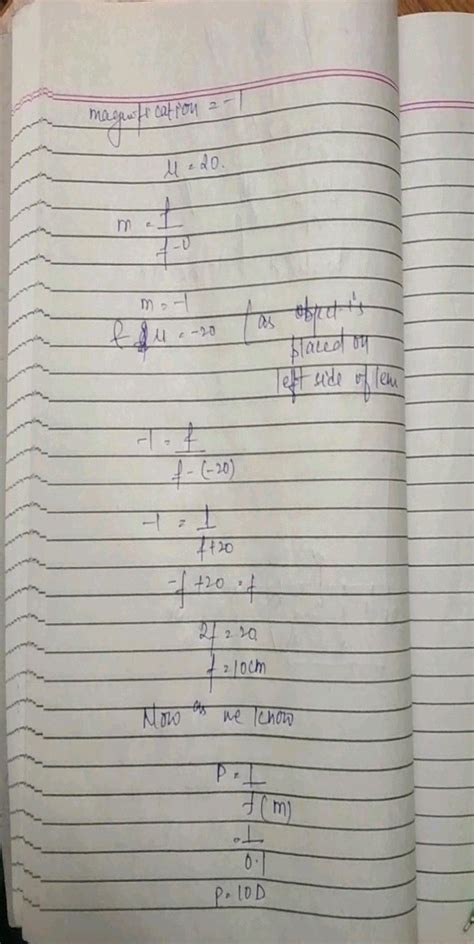 magnification = -1
u = 20.
m = f
f-u
m = -1
f u = -20 ( as object is
placed on
left side of lens
-1 = f
f-(-20)
-1 = f
f+20
-f+20 = f
2f = 20
f = 10cm
Now as we know
P = 1
f(m)
= 1
0.1
P = 10D